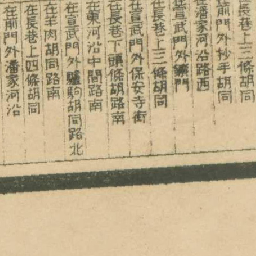 長巷上三條胡同
前門外抄手胡同
潘家河沿路西
在宣武門外
在長巷上三條胡同
在宣武門外保安寺街
在長巷下頭條胡同路南
在東河沿中間路南
在宣武門外騾駒胡同路北
在羊肉胡同路南
在長巷上四條胡同
在前門外潘家河沿